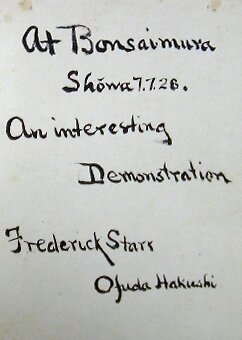 At Bonsaimura
Shōwa 7.7.26.
An interesting
Demonstration
Frederick Starr
Ofuda Hakushi